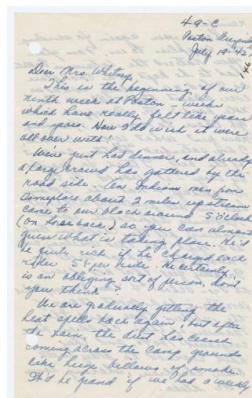 4-9-C
Poston, Arizona
July 19-'42
Dear Mrs. Whitney,
This is the beginning of our
ninth week at Poston - weeks
which have really felt like years
and years. How I do wish it were
all over with!
We've just had dinner, and already
a large crowd has gathered by the
road side. An Indian man from
someplace about 2 miles upstream
came to our block around 5 o'clock
(on horseback) so you can almost
guess what is taking place. He'd
be quite rich if he charged each
rider 5¢ per ride. He certainly
is an obliging sort of person, don't
you think?
We are gradually getting the
heat spells back again, but after
the rain, the dust has ceased
coming across the camp grounds
like huge billows of smoke.
It'd be grand if we had a weekly